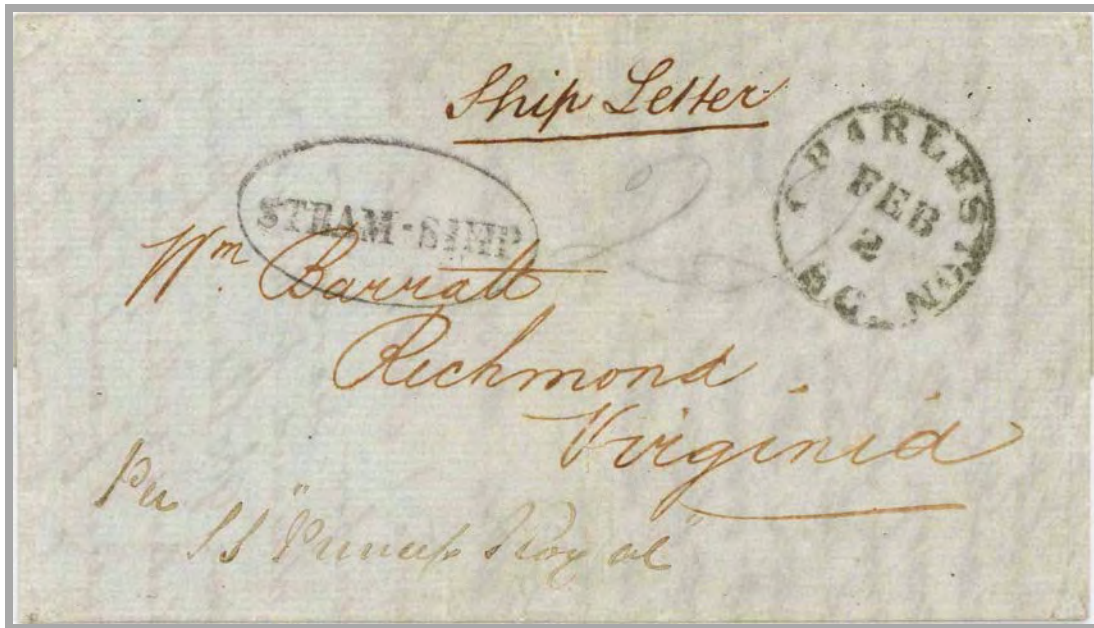 Ship Letter
STEAM-SHIP
2
CHARLESTON
FEB
2
S.C.
Wm. Barratt
Richmond
Virginia
Per
SS "Princess Royal"